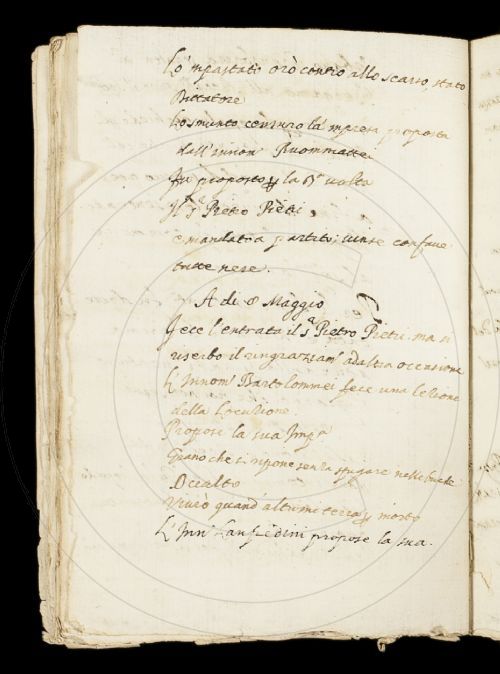 Lo 'mpastato orò contro allo scarso, stato
Dittatore
Lo smunto censurò la 'mpresa proposta
dall'Innom Buommattei
Fu proposto p la pa volta
Il Sr Pietro Pieri,
e mandato a partito, vinse con fave
tutte nere.
A dì 8 Maggio
Fece l'entrata il Sr Pietro Pieri, ma si
riserbò il ringraziam ad altra occasione
L'Innom Bartolommei fece una lezione
della Locuzione.
Propose la sua Impa
Grano che si ripone senza sfogare nelle buche
Occulto
Vivrò quand'altri mi terrà p morto
L'Inn Lanfredini propose la sua.